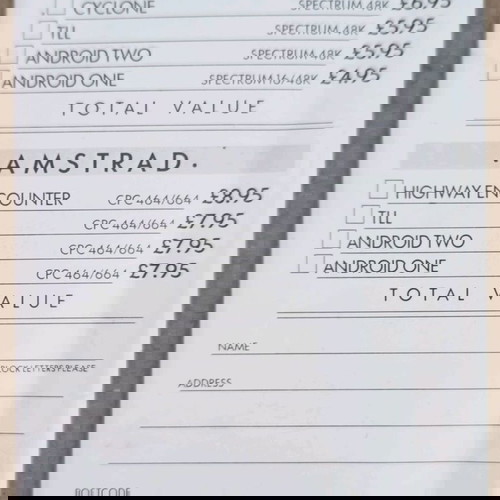 CYCLONE SPECTRUM 48K £6.95
TLL SPECTRUM 48K £5.95
ANDROID TWO SPECTRUM 48K £5.95
ANDROID ONE SPECTRUM 16/48K £4.95
TOTAL VALUE
·AMSTRAD·
HIGHWAY ENCOUNTER CPC 464/664 £8.95
TLL CPC 464/664 £7.95
ANDROID TWO CPC 464/664 £7.95
ANDROID ONE CPC 464/664 £7.95
TOTAL VALUE
NAME
BLOCK LETTERS PLEASE
ADDRESS
POSTCODE